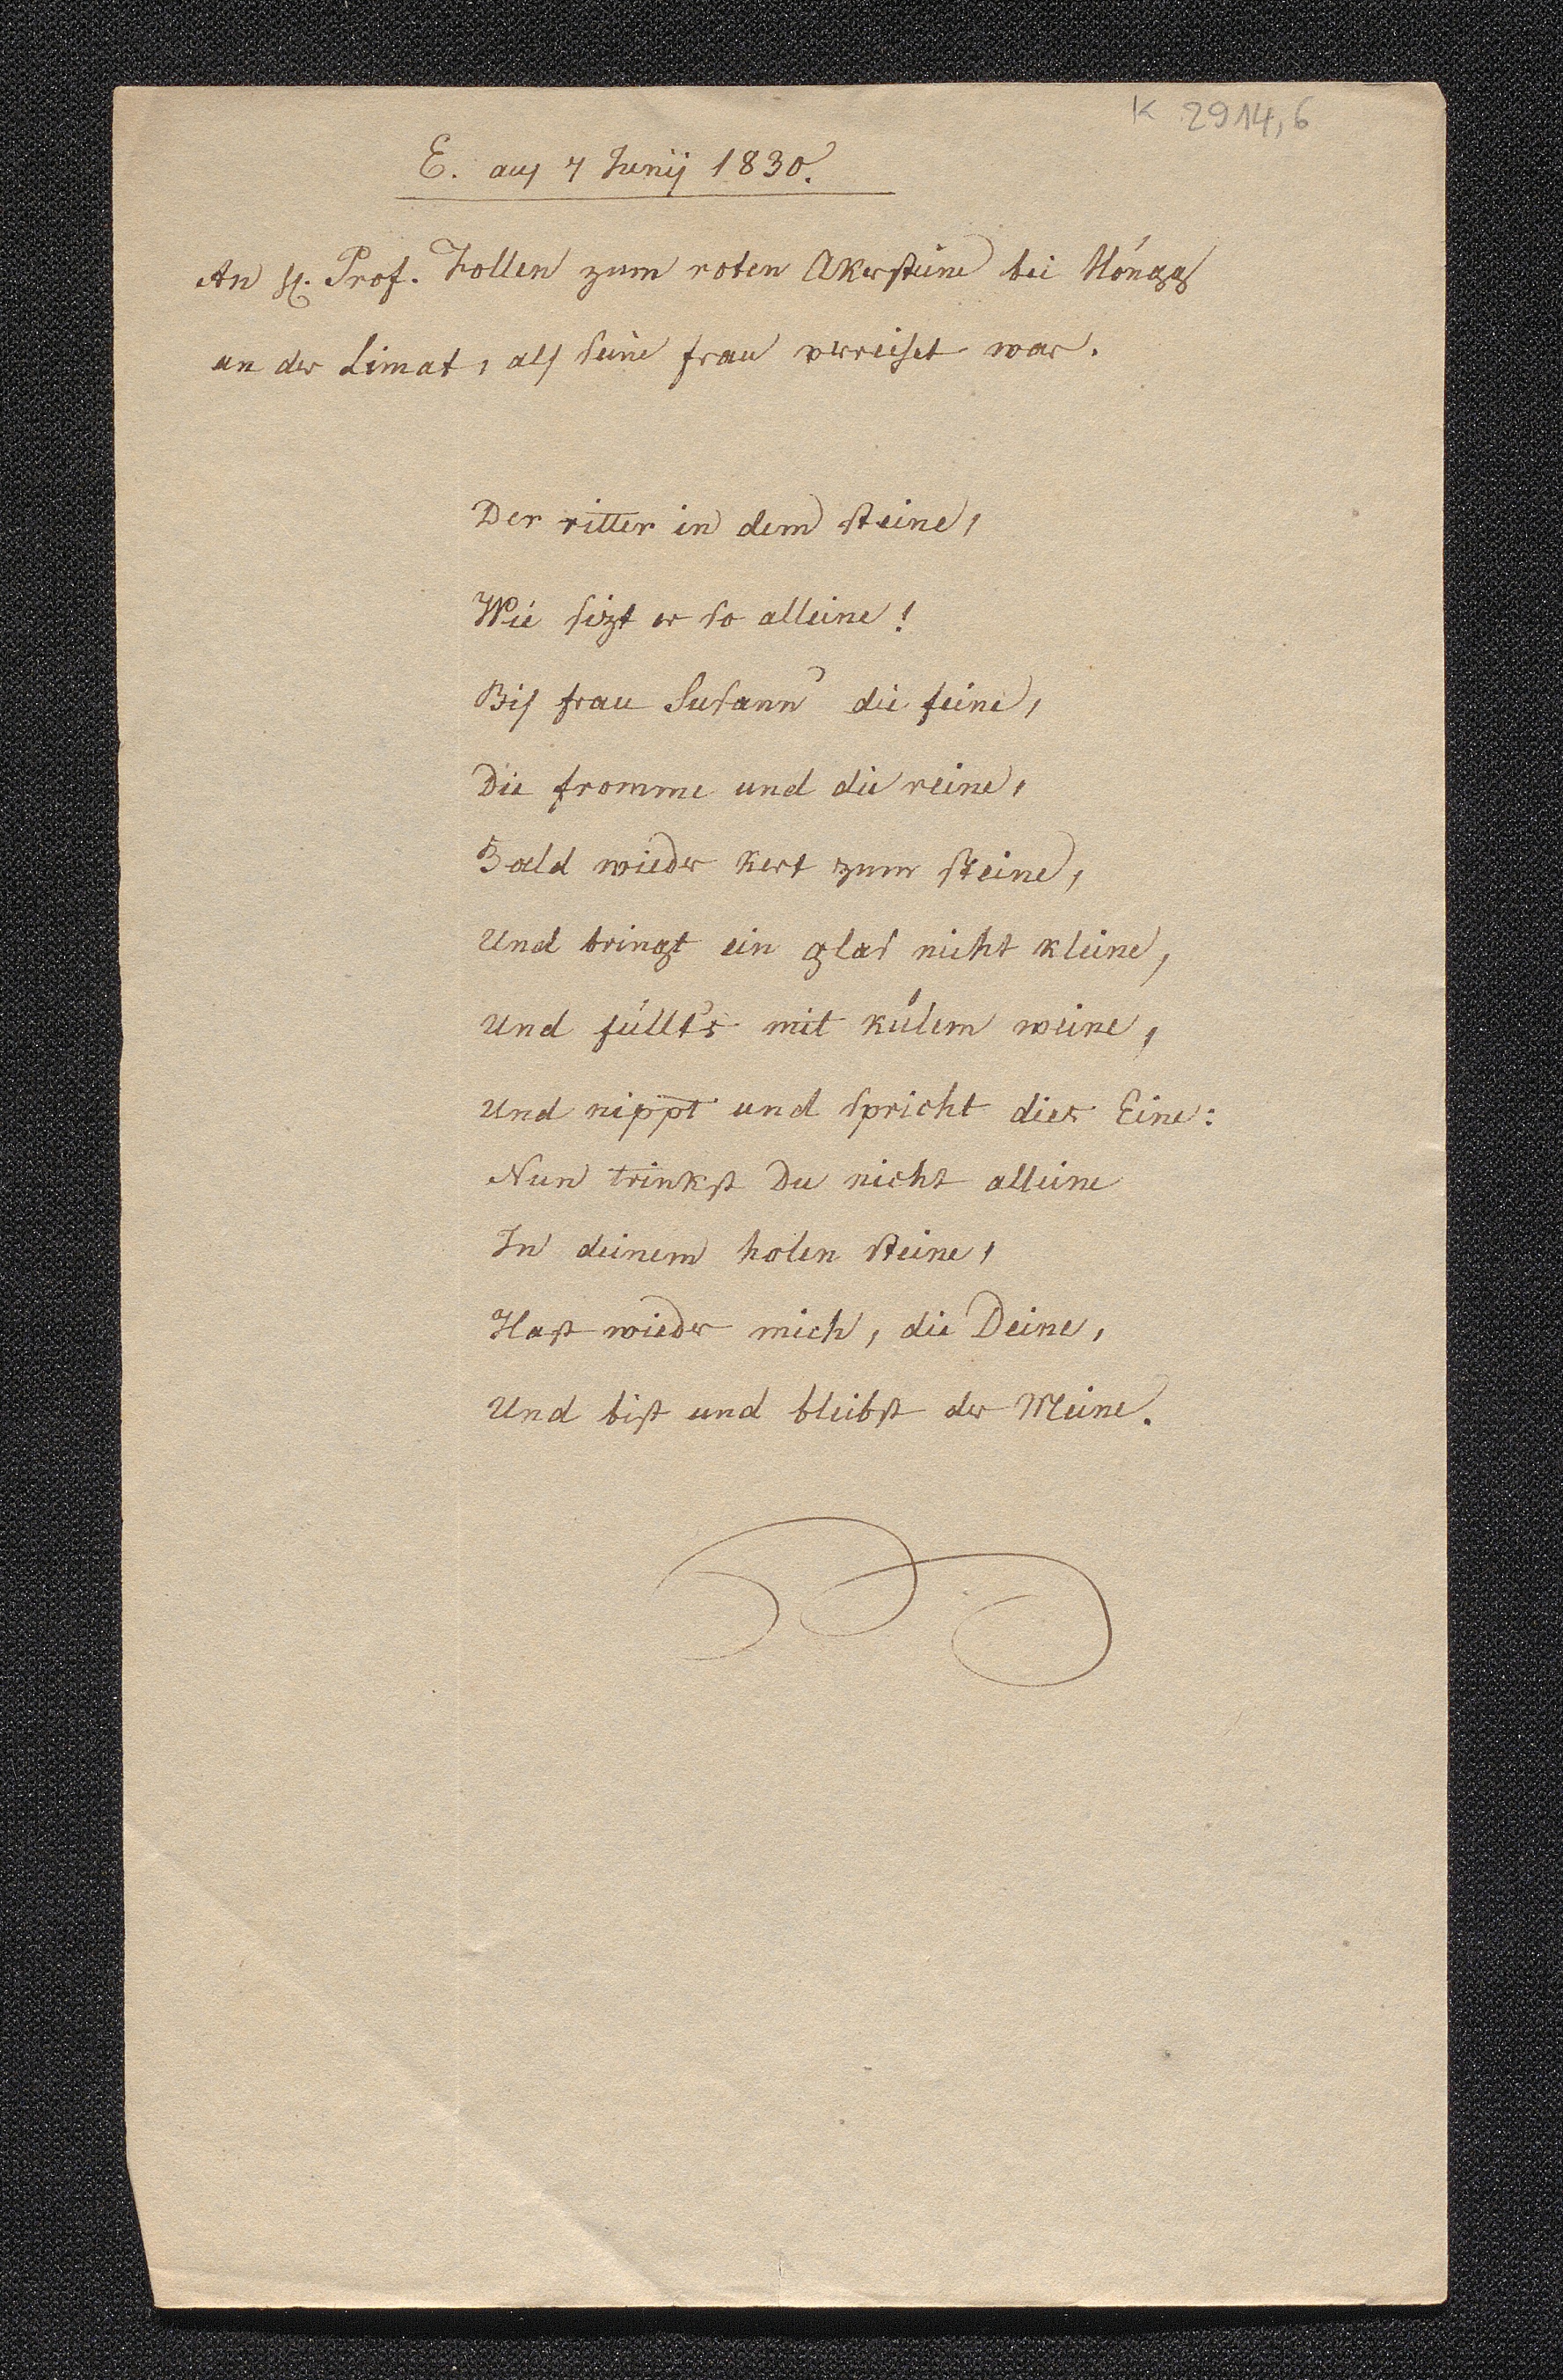 K 2914,6
E. auf 4 Junij 1830.
An H. Prof. Follen zum roten Akersteine bei Höngg
an der Limat, als seine frau verreiset war.
Der ritter in dem steine,
Wie sizt er so alleine!
Bis frau Susann' die feine,
Die fromme und die reine,
Bald wieder kert zum steine,
Und bringt ein glas nicht kleine,
Und füllt's mit külem weine,
Und nippt und spricht dies Eine:
Nun trinkst Du nicht alleine
In deinem holen steine,
Hast wieder mich, die Deine,
Und bist und bleibst der Meine.